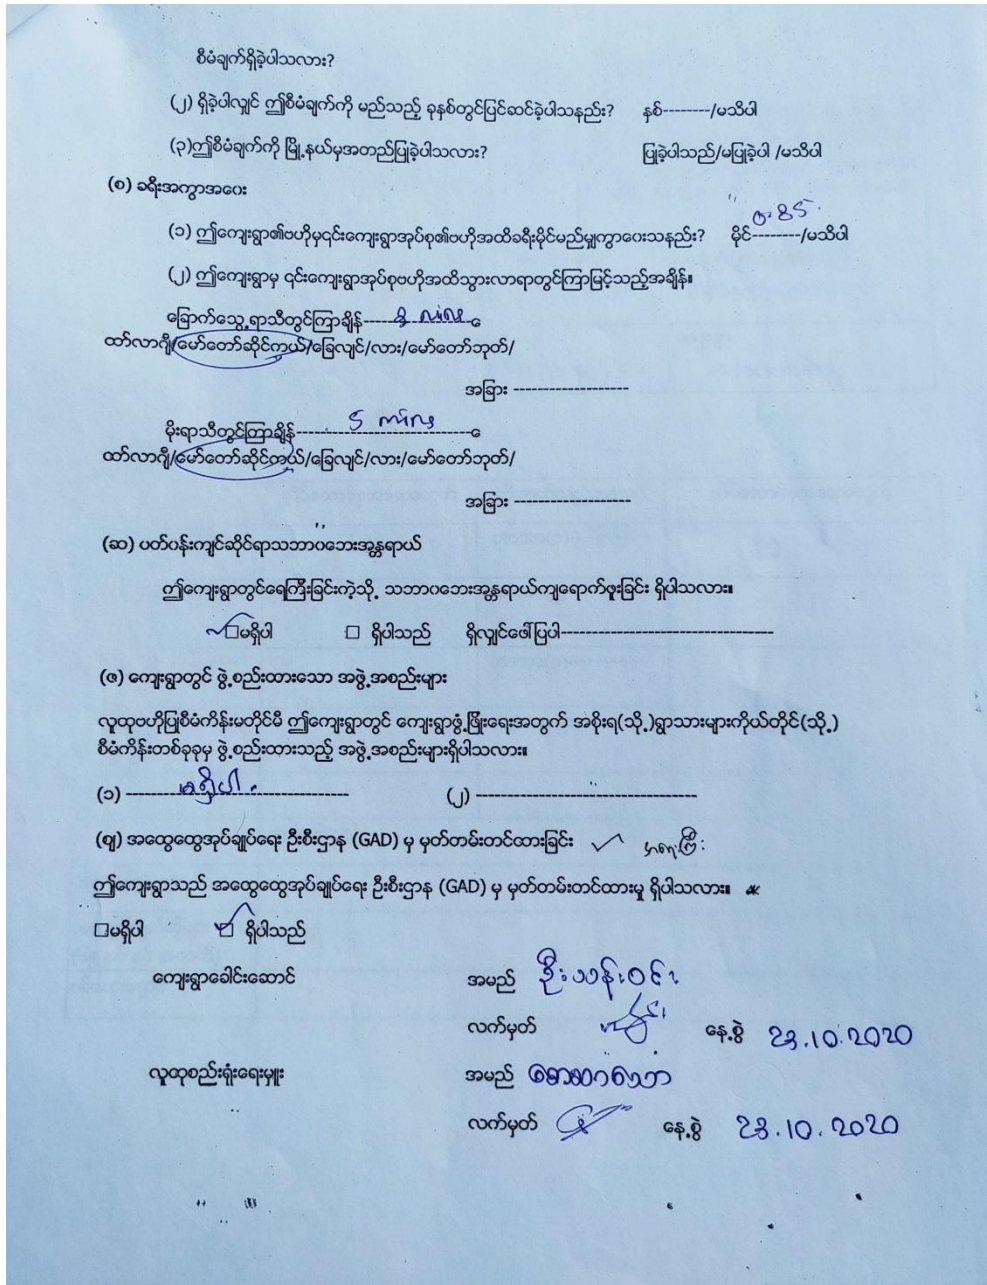 စီမံချက်ရှိခဲ့ပါသလား?
(၂) ရှိခဲ့ပါလျှင် ဤစီမံချက်ကို မည်သည့် ခုနှစ်တွင်ပြင်ဆင်ခဲ့ပါသနည်း? နှစ်--------/မသိပါ
(၃)ဤစီမံချက်ကို မြို့နယ်မှအတည်ပြုခဲ့ပါသလား? ပြုခဲ့ပါသည်/မပြုခဲ့ပါ /မသိပါ
(စ) ခရီးအကွာအဝေး
(၁) ဤကျေးရွာ၏ဗဟိုမှ၎င်းကျေးရွာအုပ်စု၏ဗဟိုအထိခရီးမိုင်မည်မျှကွာဝေးသနည်း? မိုင်--------/မသိပါ 0.85
(၂) ဤကျေးရွာမှ ၎င်းကျေးရွာအုပ်စုဗဟိုအထိသွားလာရာတွင်ကြာမြင့်သည့်အချိန်။
ခြောက်သွေ့ရာသီတွင်ကြာချိန်--------------------
ထော်လာဂျီ/မော်တော်ဆိုင်ကယ်/ခြေလျင်/လား/မော်တော်ဘုတ်/
အခြား -------------------
မိုးရာသီတွင်ကြာချိန်------ 5 mins ------
ထော်လာဂျီ/မော်တော်ဆိုင်ကယ်/ခြေလျင်/လား/မော်တော်ဘုတ်/
အခြား -------------------
(ဆ) ပတ်ဝန်းကျင်ဆိုင်ရာသဘာဝဘေးအန္တရာယ်
ဤကျေးရွာတွင်ရေကြီးခြင်းကဲ့သို့ သဘာဝဘေးအန္တရာယ်ကျရောက်ဖူးခြင်း ရှိပါသလား။
☑မရှိပါ □ ရှိပါသည် ရှိလျှင်ဖေါ်ပြပါ-----------------------------------
(ဇ) ကျေးရွာတွင် ဖွဲ့စည်းထားသော အဖွဲ့အစည်းများ
လူထုဗဟိုပြုစီမံကိန်းမတိုင်မီ ဤကျေးရွာတွင် ကျေးရွာဖွံ့ဖြိုးရေးအတွက် အစိုးရ(သို့)ရွာသားများကိုယ်တိုင်(သို့)
စီမံကိန်းတစ်ခုခုမှ ဖွဲ့စည်းထားသည့် အဖွဲ့အစည်းများရှိပါသလား။
(၁) --------- မရှိပါ ------------- (၂) ------------------------------------
(ဈ) အထွေထွေအုပ်ချုပ်ရေး ဦးစီးဌာန (GAD) မှ မှတ်တမ်းတင်ထားခြင်း ✓
ဤကျေးရွာသည် အထွေထွေအုပ်ချုပ်ရေး ဦးစီးဌာန (GAD) မှ မှတ်တမ်းတင်ထားမှု ရှိပါသလား။
□မရှိပါ ☑ ရှိပါသည်
ကျေးရွာခေါင်းဆောင် အမည် ဦးသန်းဝင်း
လက်မှတ် နေ့စွဲ 23.10.2020
လူထုစည်းရုံးရေးမှူး အမည်
လက်မှတ် နေ့စွဲ 23.10.2020